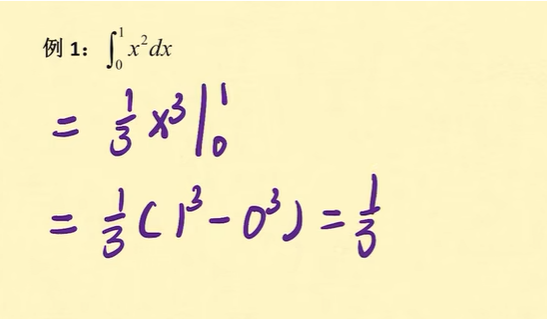 例 1： ∫₀¹ x²dx
= 1/3 x³|₀¹
= 1/3 (1³ - 0³) = 1/3